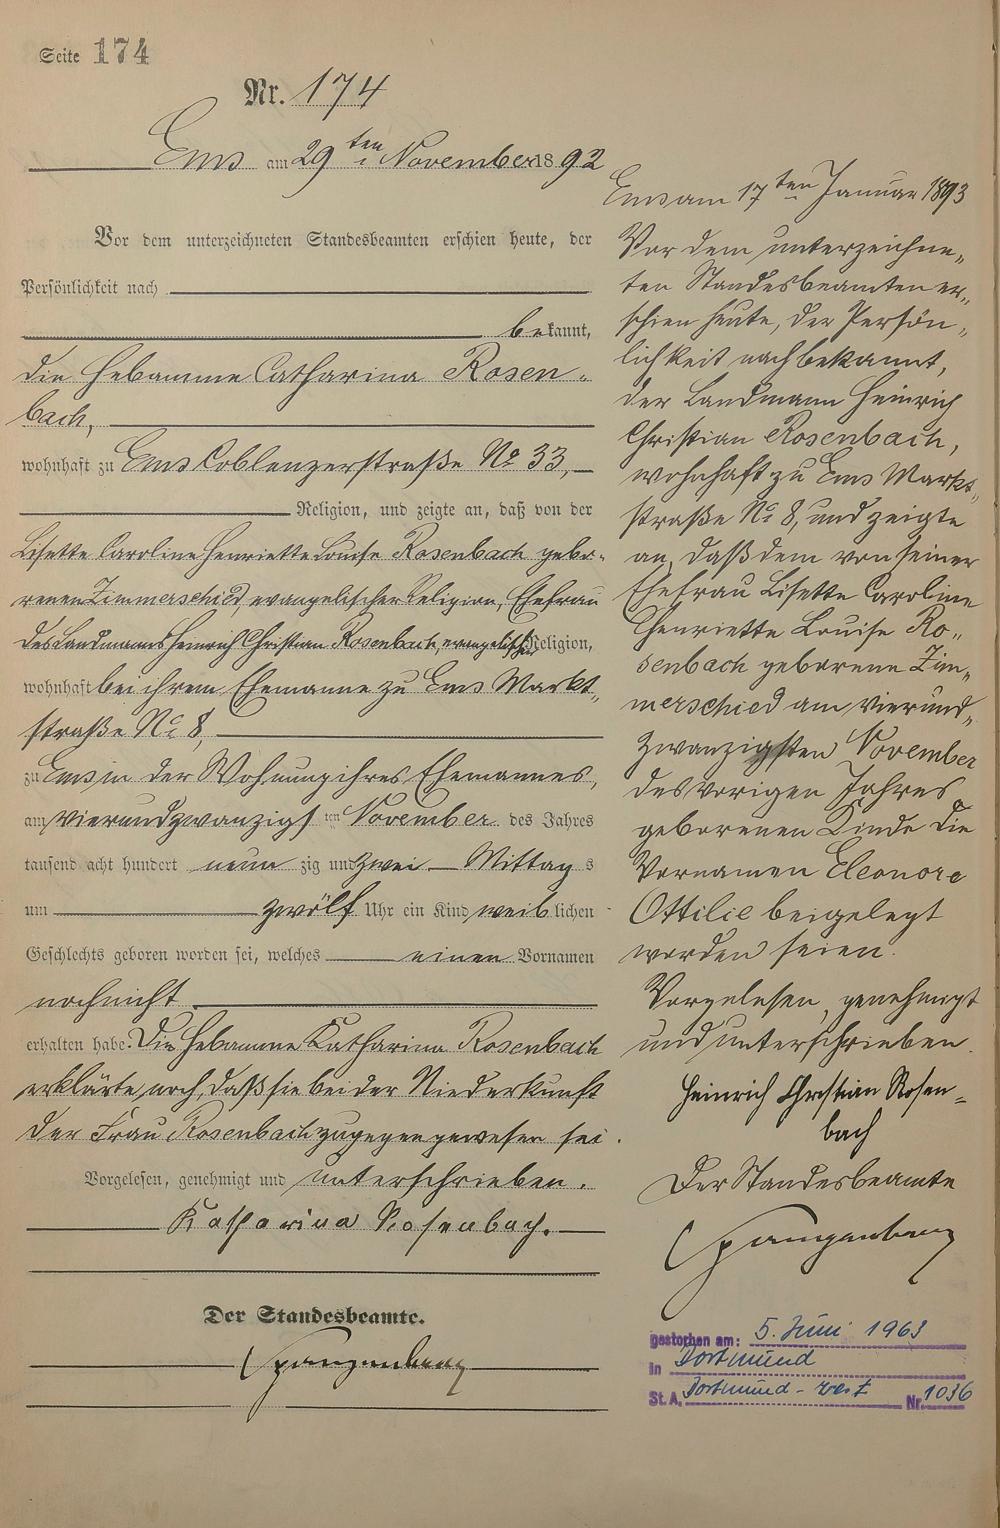 Seite 174
Nr. 174
Ems am 29ten November 1892
Vor dem unterzeichneten Standesbeamten erschien heute, der
Persönlichkeit nach
bekannt,
die Hebamme Catharina Rosen-
bach,
wohnhaft zu Ems Coblenzerstraße No 33,
Religion, und zeigte an, daß von der
Lisette Caroline Henriette Louise Rosenbach gebo-
renen Zimmerschied, evangelischer Religion, Ehefrau
des Landmanns Heinrich Christian Rosenbach, evangelischer Religion,
wohnhaft bei ihrem Ehemanne zu Ems Markt-
straße No 8,
zu Ems in der Wohnung ihres Ehemannes,
am vierundzwanzigsten November des Jahres
tausend acht hundert neunzig und zwei Mittags
um zwölf Uhr ein Kind weiblichen
Geschlechts geboren worden sei, welches einen Vornamen
noch nicht
erhalten habe. Die Hebamme Katharina Rosenbach
erklärte noch, daß sie bei der Niederkunft
der Frau Rosenbach zugegen gewesen sei.
Vorgelesen, genehmigt und unterschrieben.
Katharina Rosenbach.
Der Standesbeamte.
Spangenberg
Ems am 17ten Januar 1893
Vor dem unterzeichne-
ten Standesbeamten er-
schien heute, der Persön-
lichkeit nach bekannt,
der Landmann Heinrich
Christian Rosenbach,
wohnhaft zu Ems Markt-
straße No 8, und zeigte
an, daß dem von seiner
Ehefrau Lisette Caroline
Henriette Louise Ro-
senbach geborene Zim-
merschied am vierund-
zwanzigsten November
des vorigen Jahres
geborenen Kinde die
Vornamen Eleonore
Ottilie beigelegt
worden seien.
Vorgelesen, genehmigt
und unterschrieben.
Heinrich Christian Rosen-
bach
Der Standesbeamte
Spangenberg
gestorben am: 5. Juni 1963
in Dortmund
St.A. Dortmund-West Nr. 1036